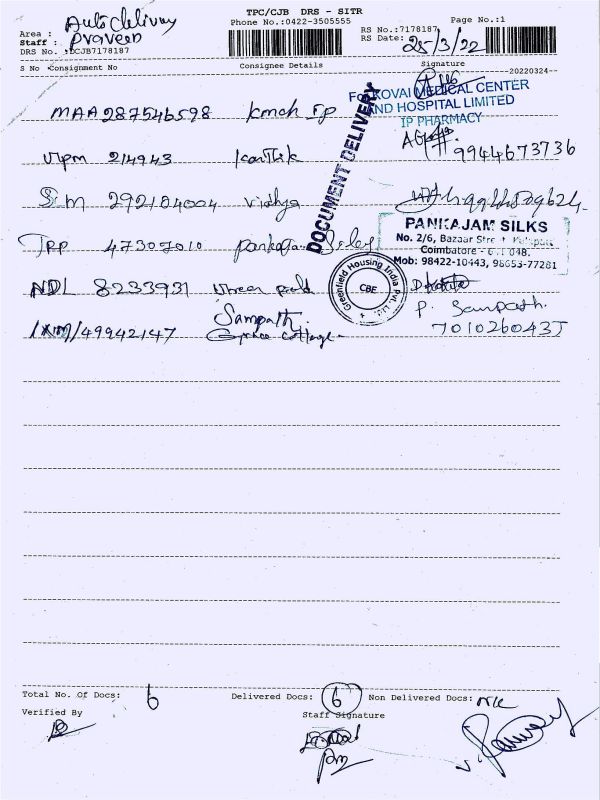 TPC/CJB DRS - SITR
Phone No.:0422-3505555
Page No.:1
Area : Autodelivery
Staff : Praveen
DRS No. :DCJB7178187
RS No.:7178187
RS Date: 25/3/22
S No Consignment No Consignee Details Signature
20220324
MAA287546598 kmch IP
For KOVAI MEDICAL CENTER
AND HOSPITAL LIMITED
IP PHARMACY
9944673736
DOCUMENT DELIVERY
214943 Karthik
292184004 Vidhya
TRP 47307010 Pankajam Silks
PANKAJAM SILKS
No. 2/6, Bazaar Street,
Coimbatore - 641 048.
Mob: 98422-10443, 98653-77281
NDL 8233931
Greenfield Housing India Pvt. Ltd.
CBE
IXM/49942147 Sampath
Grace Cottage
P. Sampath.
7010260435
Total No. Of Docs: 6 Delivered Docs: 6 Non Delivered Docs: NIL
Verified By
Staff Signature